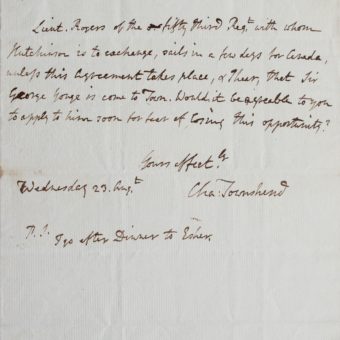 Lieut. Rogers of the fifty third Regt. with whom
Hutchinson is to exchange, sails in a few days for Canada,
unless this Agreement takes place, & I hear, that Sir
George Yonge is come to Town. Would it be agreeable to you
to apply to him soon for fear of losing this opportunity?
Yours affectly
Wednesday 23. Augt. Chas: Townshend
P.S.
I go after Dinner to Esher.